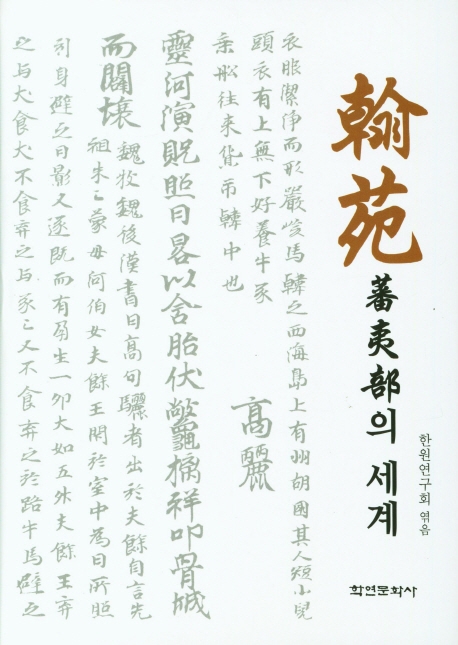 翰苑
蕃夷部의 세계
한원연구회 엮음
학연문화사
衣服潔淨而形嚴 馬韓之西海島上有州胡國其人短小髡
頭衣有上無下好養牛豕
乘船往來貨市韓中也
高麗
靈河演貺照日晷以含胎伏鼈摛祥叩骨城
而闢壤
魏收魏後漢書曰高句驪者出於夫餘自言先
祖朱々蒙母河伯女夫餘王閇於室中為日所照
引身避之日影又逐既而有孕生一卵大如五升夫餘王弃
之与犬食犬不食弃之与豕々又不食弃之於路牛馬避之